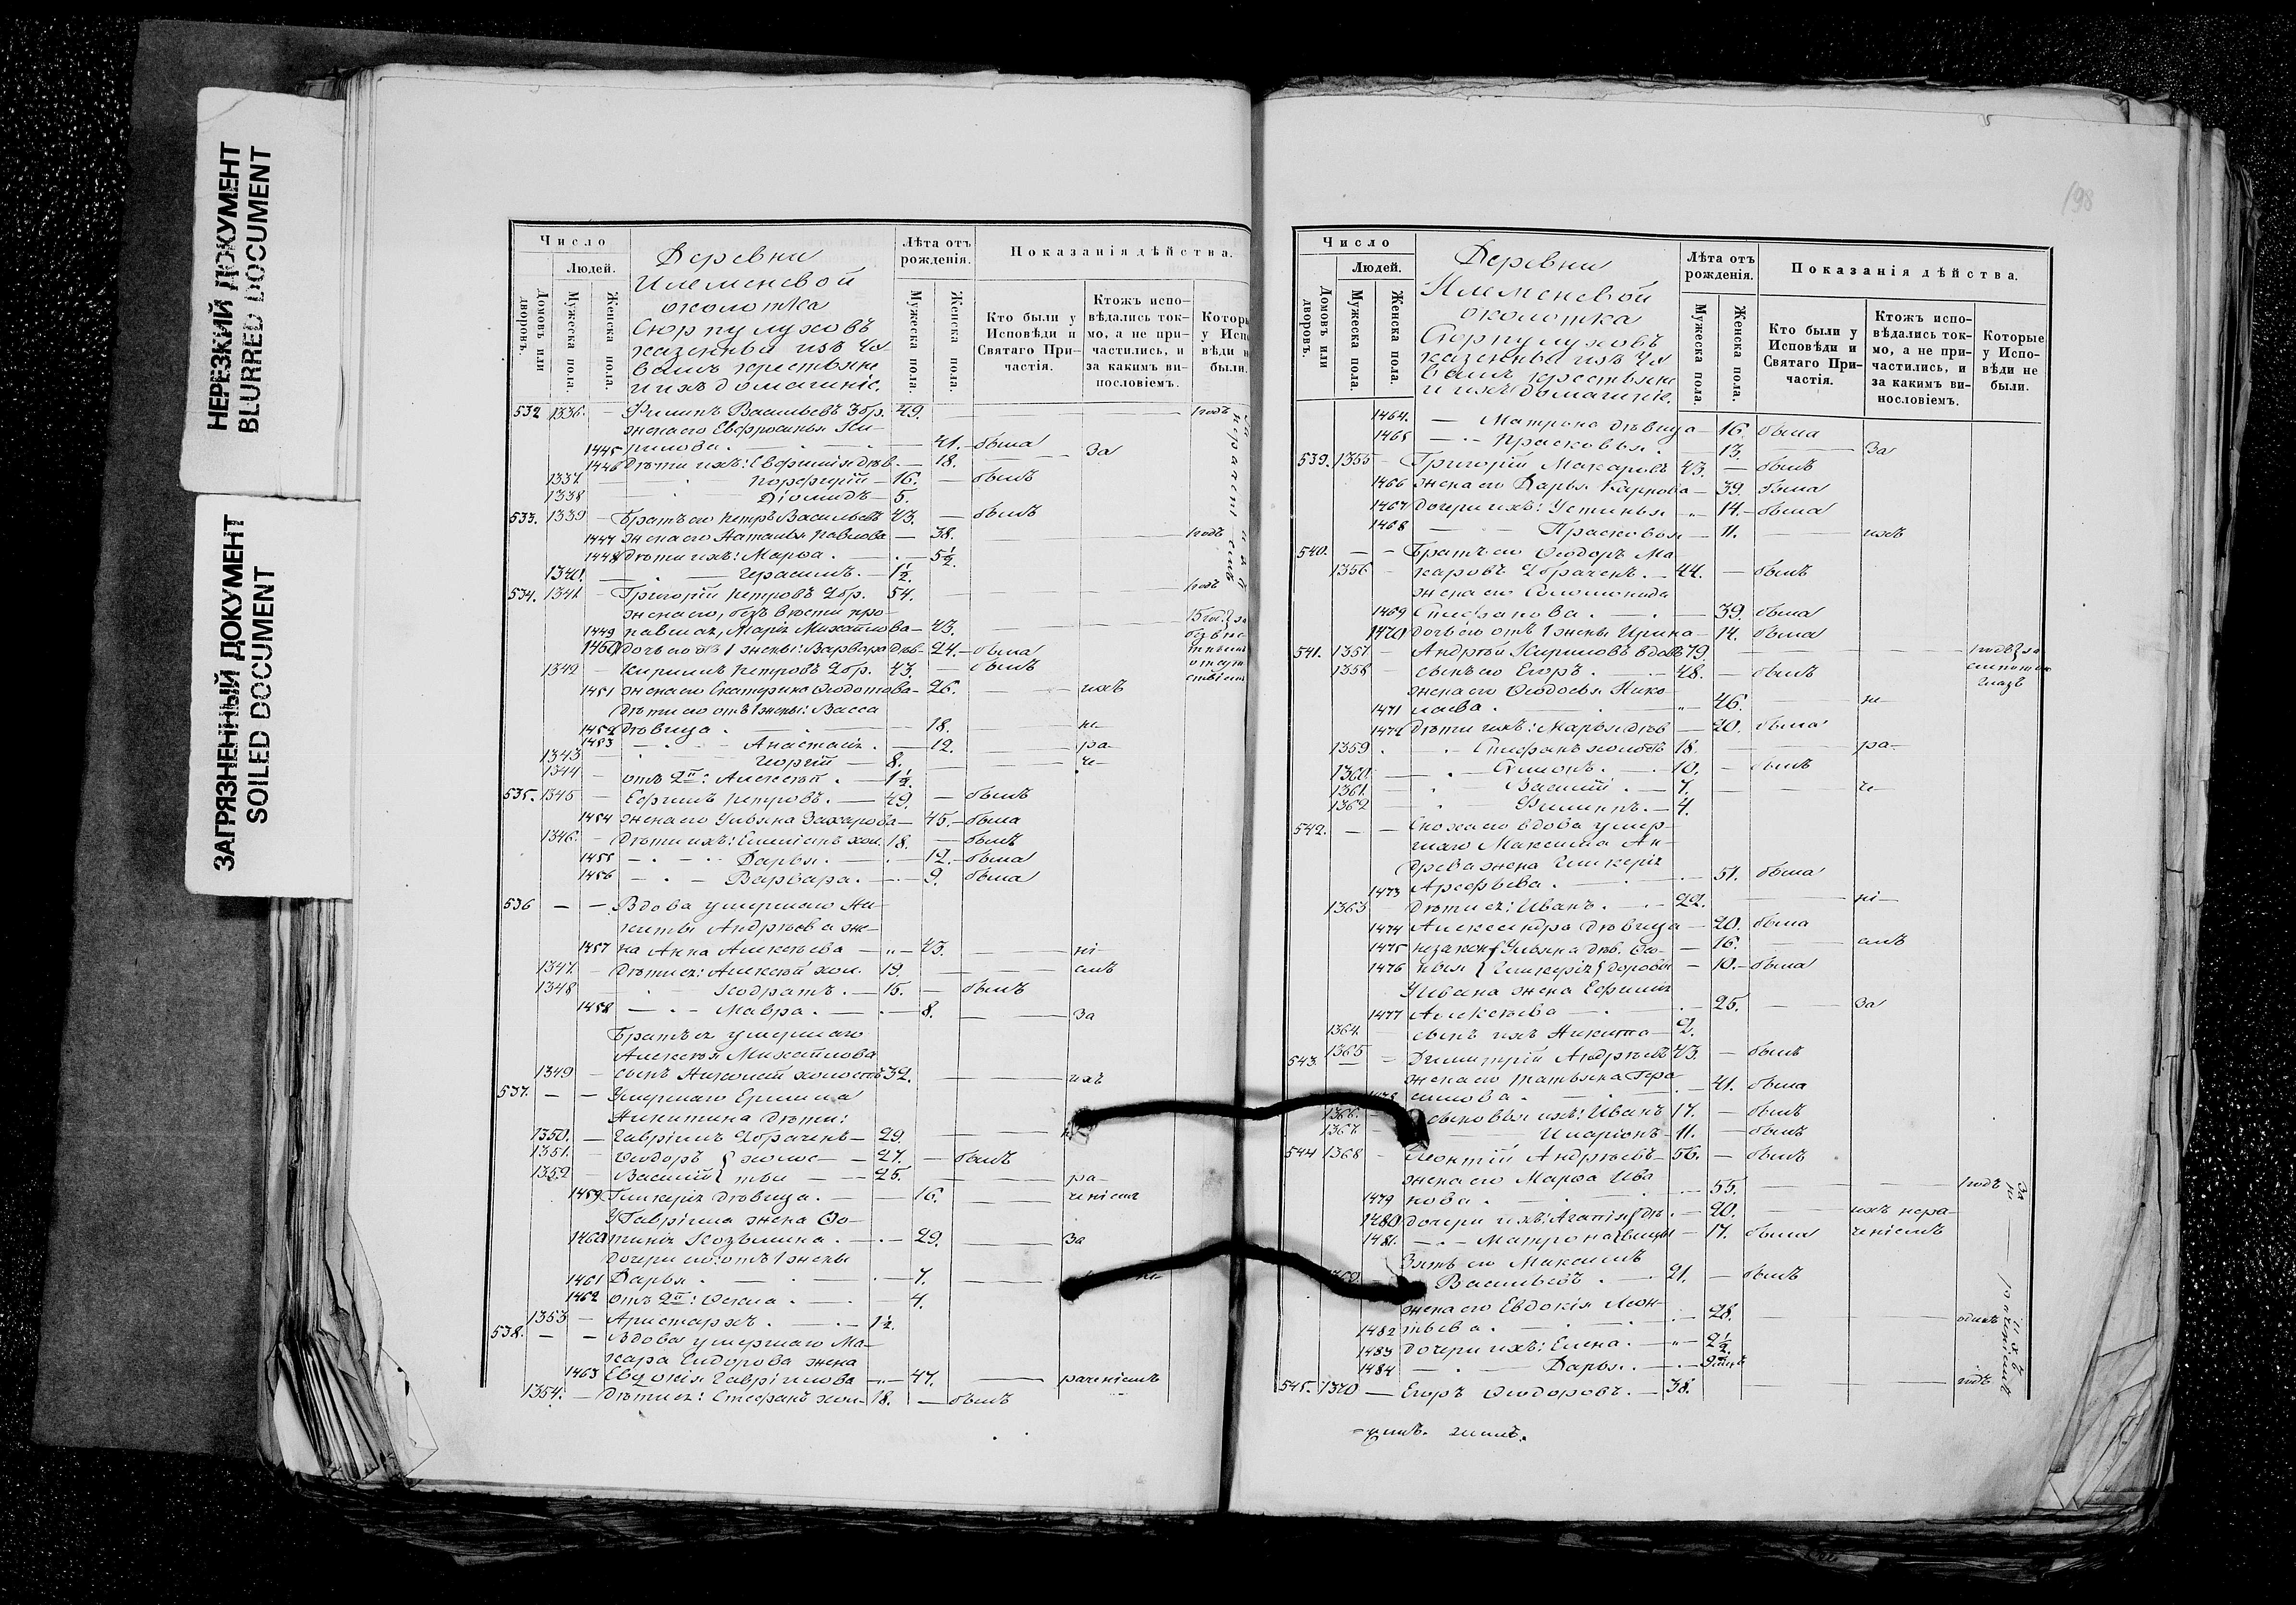 НЕРЕЗКИЙ ДОКУМЕНТ
BLURRED DOCUMENT
ЗАГРЯЗНЕННЫЙ ДОКУМЕНТ
SOILED DOCUMENT
Число
Людей.
Домовъ или дворовъ.
Мужеска пола.
Женска пола.
Деревни
околотка
казенныи изъ Чу-
вашъ крестьяне
и ихъ домашніе.
Лѣта отъ рожденія.
Мужеска пола.
Женска пола.
Показанія дѣйства.
Кто были у Исповѣди и Святаго Причастія.
Ктожъ исповѣдались токмо, а не причастились, и за какимъ винословіемъ.
532 1336. – Филиппъ Васильевъ 3 бр. 49. годъ
жена его Евфросинья Ки-
1445 рилова. – 41. – была За
1446 Дѣти ихъ: Евфимія дѣв. – 18.
1337 Порфирій – 16. – былъ
1338 Діомидъ – 5.
533. 1339 – Братъ его Петръ Васильевъ 43. – былъ
1447 жена его Наталья Павлова – 38. годъ
1448 Дѣти ихъ: Марѳа. – 5½
1340. Герасимъ. – 1½.
534. 1341 – Григорій Петровъ 2 бр. 54. годъ
жена его, безъ вѣсти про-
1449 павшая, Марія Михайлова – 43.
1450 дочь его отъ 1 жены: Варвара дѣв. – 24. – была
1342 – Кириллъ Петровъ 2 бр. 43. – былъ
1451 жена его Екатерина Ѳедотова – 26. ихъ
Дѣти его отъ 1 жены: Васса
1452 дѣвица. – 18. не
1453 Анастасія. – 12. ра-
1343 Георгій – 8. че-
1344 – отъ 2й: Алексѣй. – 1½.
535. 1345 – Ефимъ Петровъ. – 49. – былъ
1454 жена его Ульяна Захарова – 45. – была
1346. – Дѣти ихъ: Емиліанъ хол. 18. – былъ
1455 Дарья. – 12. – была
1456 Варвара. – 9. была
536 – – Вдова умершаго Ни-
киты Андреева же-
1457 на Анна Алексѣева – 43. ні-
1347. – Дѣти ея: Алексѣй хол. 19. емъ
1348 Кодратъ. – 15. – былъ
1458 Мавра. – 8. За
Братъ ея умершаго
Алексѣя Михайлова
1349 – сынъ Николай холостъ 32. ихъ
537. – – Умершаго Ермила
Никитина дѣти:
1350. – Гавріилъ 2 браченъ – 29.
1351. – Ѳеодоръ } холос- – 27. – былъ
1352 – Василій } тыи – 25. ра-
1459 Гликерія дѣвица. – 16. ченіемъ
У Гавріила жена Ѳо-
1460 тинія Козьмина. – 29. За
дочери его: отъ 1 жены
1461 Дарья. – 7.
1462 отъ 2й: Ѳекла. – 4.
1353 – Аристархъ. – 1½.
538. – – Вдова умершаго Ма-
кара Сидорова жена
1463 Евдокія Гавріилова – 47. раченіемъ
1354. – Дѣти ея: Стефанъ хол. 18. – былъ
198
Число
Людей.
Домовъ или дворовъ.
Мужеска пола.
Женска пола.
Деревни
околотка
казенныи изъ Чу-
вашъ крестьяне
и ихъ домашніе.
Лѣта отъ рожденія.
Мужеска пола.
Женска пола.
Показанія дѣйства.
Кто были у Исповѣди и Святаго Причастія.
Ктожъ исповѣдались токмо, а не причастились, и за какимъ винословіемъ.
Которые у Исповѣди не были.
1464. – Матрона дѣвица – 16. была
1465 – Прасковья. 13. За
539. 1355 – Григорій Макаровъ 43. – былъ
1466 жена его Дарья Карпова – 39. была
1467 дочери ихъ: Устинья – 14. – была
1468 Прасковья – 11. ихъ
540. – – Братъ его Ѳеодоръ Ма-
1356 – каровъ 2 браченъ. – 44. – былъ
жена его Соломонида
1469 Стефанова. – 39. была
1470 дочь его отъ 1 жены Ирина – 14. была
541. 1357 – Андрей Кириловъ вдовъ 79.
1358 – сынъ его Егоръ. – 48. – былъ
жена его Ѳеодосья Нико-
1471 лаева. – 46. не
1472 дѣти ихъ: Марья дѣв. – 20. была
1359 Стефанъ холостъ 18. ра-
1360 Симонъ. – 10. – былъ
1361. Василій. – 7. че-
1362 Филиппъ. – 4.
542. – – Сноха его вдова умер-
шаго Максима Ан-
дреева жена Гликерія
1473 Арефьева. – 51. была
1363 – Дѣти ея: Иванъ. – 22. ні-
1474 Александра дѣвица – 20. была
1475 незакон { Ульяна дѣв. – 16. емъ
1476 Гликерія – 10. – была
У Ивана жена Ефимія
1477 Алексѣева – 25. За
1364. сынъ ихъ Никита – 2.
543. 1365 – Димитрій Андреевъ 43. – былъ
жена его Татьяна Гера-
1478 симова. – 41. была
1366. – сыновья ихъ: Иванъ 17. – былъ
1367. Иларіонъ – 11. – былъ
544 1368 – Леонтій Андреевъ – 56. – былъ
жена его Марѳа Ива-
1479 нова. – 55. годъ
1480 дочери ихъ: Агапія дѣ- – 20. ихъ нера-
1481. Матрона вицы – 17. была ченіемъ
Зять его Максимъ
Васильевъ. – 21. – былъ
жена его Евдокія Леон-
1482 тьева. – 28.
1483 дочери ихъ: Елена. – 2½.
1484 Дарья. –
545. 1370 – Егоръ Ѳеодоровъ. – 38. годъ